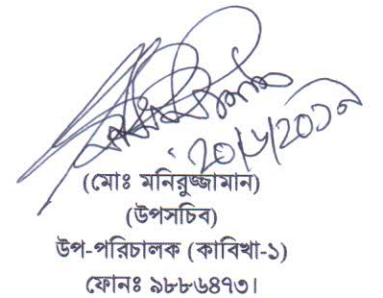 ২০/৬/২০১৭
(মোঃ মনিরুজ্জামান)
(উপসচিব)
উপ-পরিচালক (কাবিখা-১)
ফোনঃ ৯৮৮৬৪৭৩।